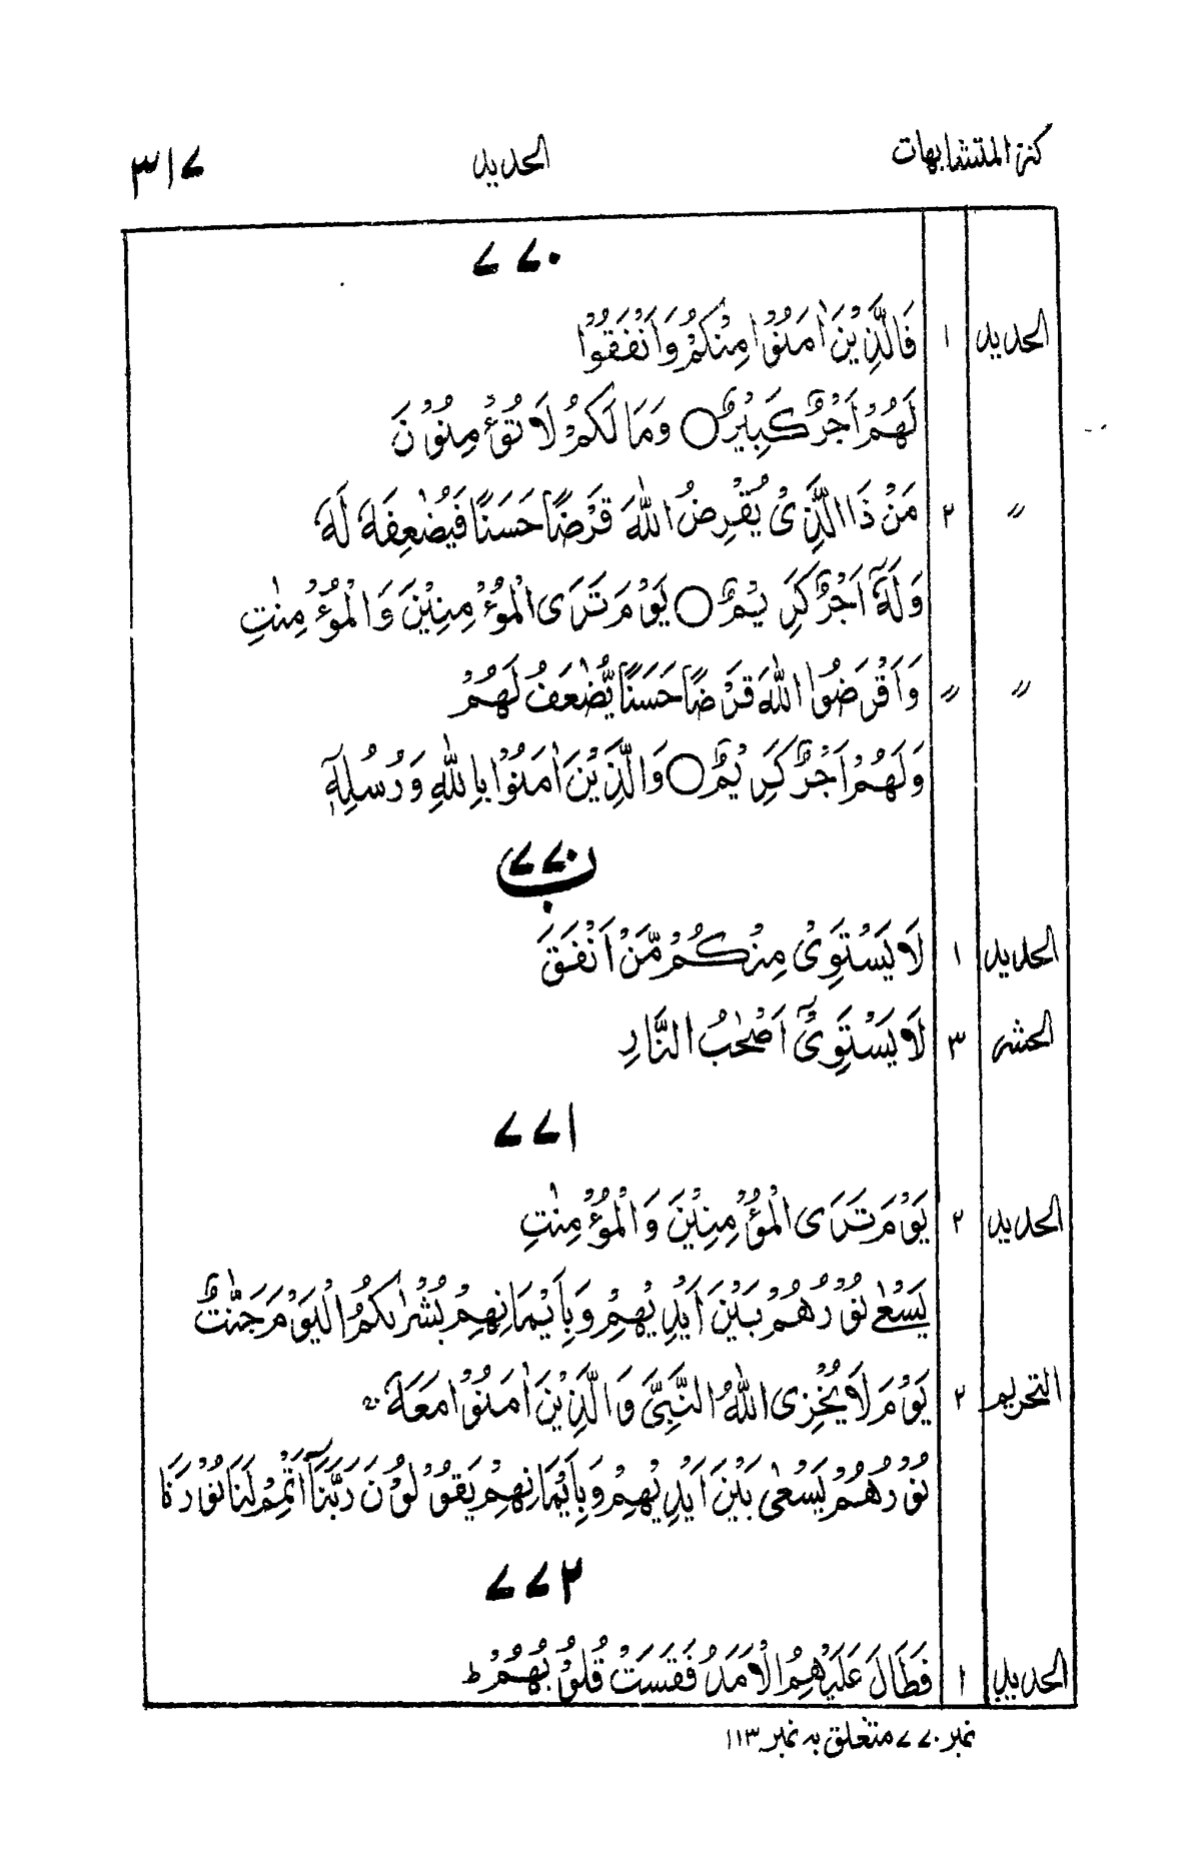 کنز المتشابہات الحدید ۳۱۷
۷۷۰
الحدید ۱ فَالَّذِیْنَ اٰمَنُوْا مِنْکُمْ وَاَنْفَقُوْا
لَهُمْ اَجْرٌ کَبِیْرٌ ○ وَمَا لَکُمْ لَا تُؤْمِنُوْنَ
〃 ۲ مَنْ ذَا الَّذِیْ یُقْرِضُ اللّٰهَ قَرْضًا حَسَنًا فَیُضٰعِفَهٗ لَهٗ
وَلَهٗۤ اَجْرٌ کَرِیْمٌ ○ یَوْمَ تَرَی الْمُؤْمِنِیْنَ وَالْمُؤْمِنٰتِ
〃 〃 وَاَقْرَضُوا اللّٰهَ قَرْضًا حَسَنًا یُّضٰعَفُ لَهُمْ
وَلَهُمْ اَجْرٌ کَرِیْمٌ ○ وَالَّذِیْنَ اٰمَنُوْا بِاللّٰهِ وَرُسُلِهٖۤ
۷۷۰ ب
الحدید ۱ لَا یَسْتَوِیْ مِنْکُمْ مَّنْ اَنْفَقَ
الحشر ۳ لَا یَسْتَوِیْۤ اَصْحٰبُ النَّارِ
۷۷۱
الحدید ۲ یَوْمَ تَرَی الْمُؤْمِنِیْنَ وَالْمُؤْمِنٰتِ
یَسْعٰی نُوْرُهُمْ بَیْنَ اَیْدِیْهِمْ وَبِاَیْمَانِهِمْ بُشْرٰىکُمُ الْیَوْمَ جَنّٰتٌ
التحریم ۲ یَوْمَ لَا یُخْزِی اللّٰهُ النَّبِیَّ وَالَّذِیْنَ اٰمَنُوْا مَعَهٗ
نُوْرُهُمْ یَسْعٰی بَیْنَ اَیْدِیْهِمْ وَبِاَیْمَانِهِمْ یَقُوْلُوْنَ رَبَّنَاۤ اَتْمِمْ لَنَا نُوْرَنَا
۷۷۲
الحدید ۱ فَطَالَ عَلَیْهِمُ الْاَمَدُ فَقَسَتْ قُلُوْبُهُمْ ؕ
نمبر ۷۷۰ متعلق بہ نمبر ۱۱۳